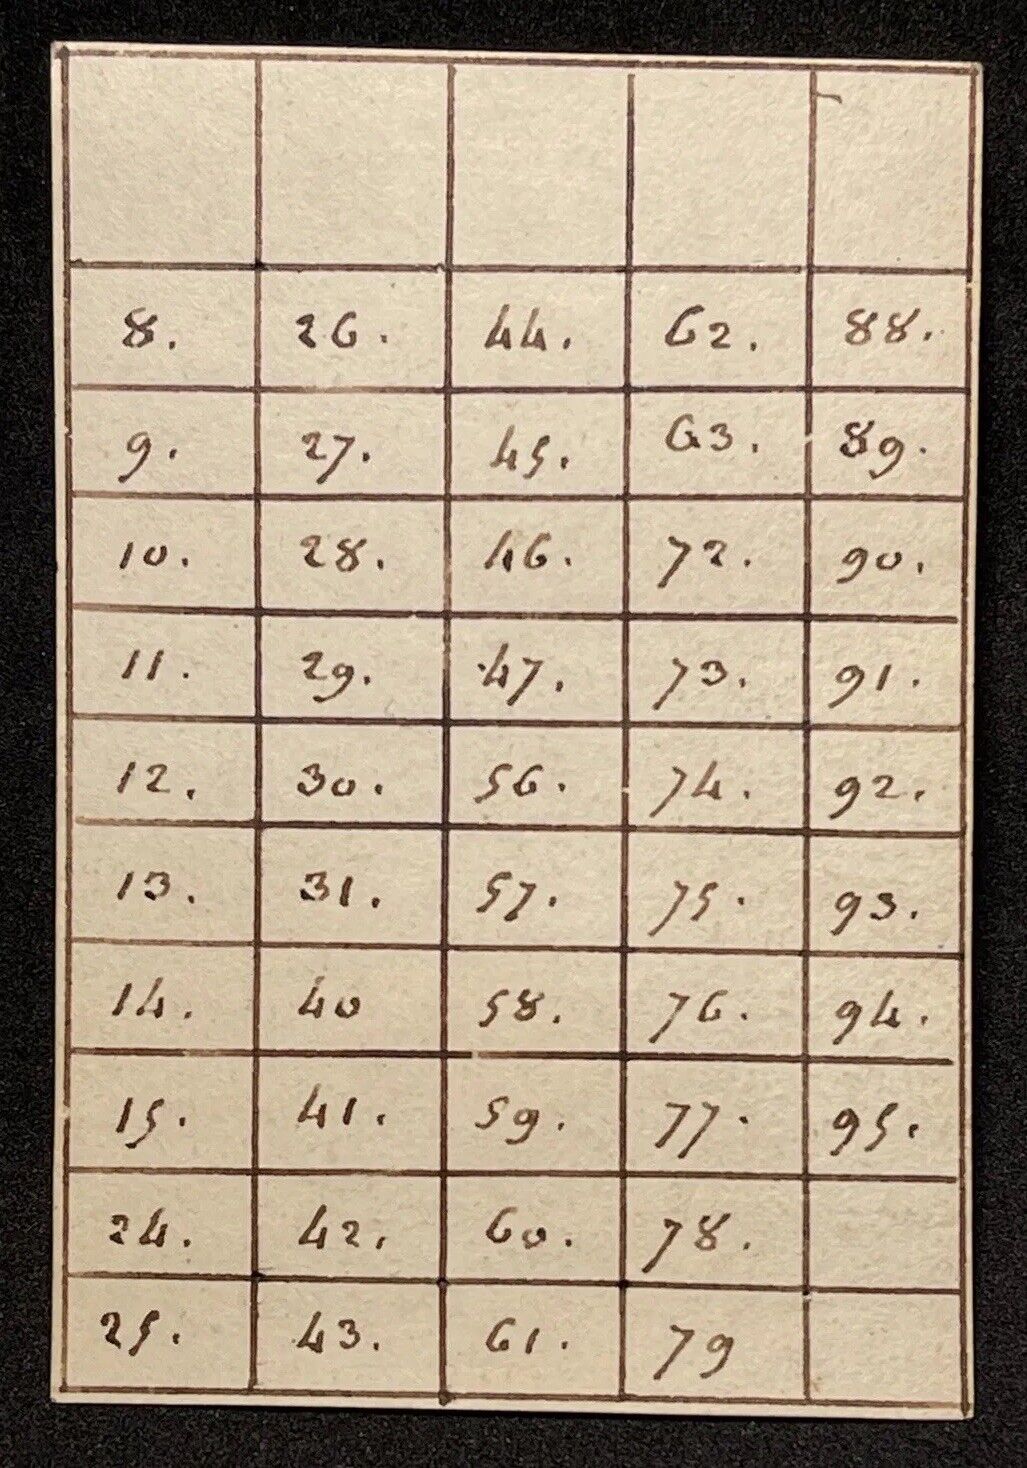 8. 26. 44. 62. 88.
9. 27. 45. 63. 89.
10. 28. 46. 72. 90.
11. 29. 47. 73. 91.
12. 30. 56. 74. 92.
13. 31. 57. 75. 93.
14. 40 58. 76. 94.
15. 41. 59. 77. 95.
24. 42. 60. 78.
25. 43. 61. 79